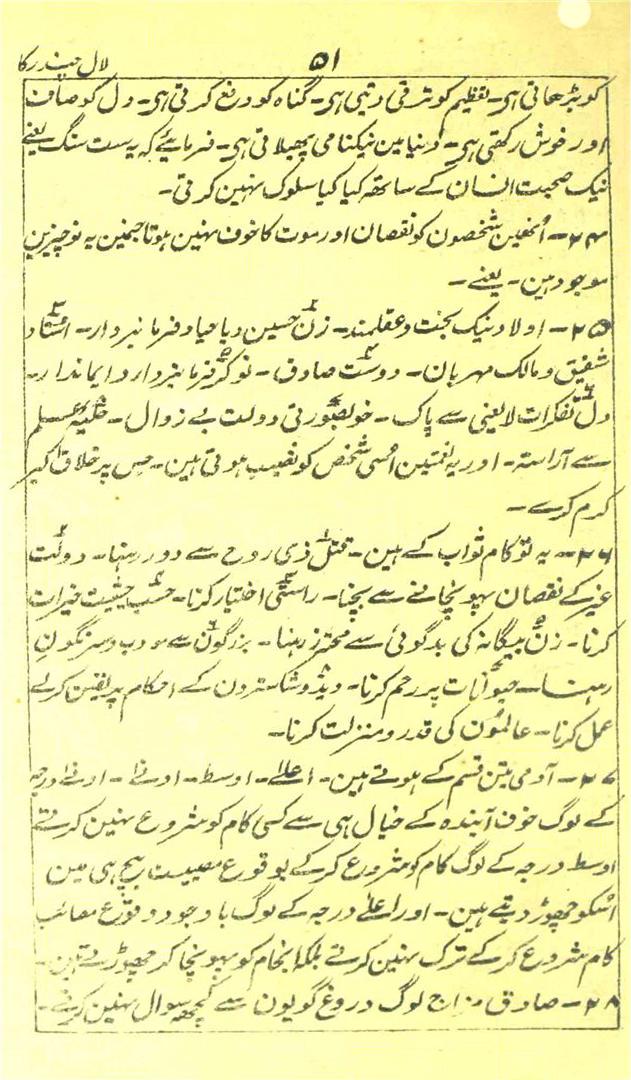 ۵۱ لال چندرکا
کو بڑھاتی ہی۔ تعظیم کو ترقی دیتی ہی۔ گناہ کو دفع کرتی ہی۔ دل کو صاف
اور خوش رکھتی ہی۔ دنیا مین نیکنامی پھیلاتی ہی۔ فرمایئے کہ یہ ست سنگ یعنے
نیک صحبت انسان کے ساتھہ کیا کیا سلوک نہین کرتی۔
۲۴۔ اُنھین شخصون کو نقصان اور موت کا خوف نہین ہوتا جنمین یہ نو چیزین
موجود ہین۔ یعنے۔
۲۵۔ اولاد نیک بخت و عقلمند۔ زن حسین و باحیا و فرمانبردار۔ استاد
شفیق و مالک مہربان۔ دوست صادق۔ نوکر فرمانبردار و ایماندار۔
دل تفکرات لایعنی سے پاک۔ خوبصورتی دولت بے زوال۔ علم
سے آراستہ۔ اور یہ نعمتین اُسی شخص کو نصیب ہوتی ہین۔ جس پر خلاق اکبر
کرم کرے۔
۲۶۔ یہ نو کام ثواب کے ہین۔ قتل ذی روح سے دور رہنا۔ دولت
غیر کے نقصان پہونچانے سے بچنا۔ راستی اختیار کرنا۔ حسب حیثیت خیرات
کرنا۔ زن بیگانہ کی بدگوئی سے محترز رہنا۔ بزرگون سے مودب و سرنگون
رہنا۔ حیوانات پر رحم کرنا۔ وید و شاسترون کے احکام پر یقین کرکے
عمل کرنا۔ عالمون کی قدر و منزلت کرنا۔
۲۷۔ آدمی تین قسم کے ہوتے ہین۔ اعلے۔ اوسط۔ ادنے۔ ادنے درجہ
کے لوگ خوف آیندہ کے خیال ہی سے کسی کام کو شروع نہین کرتے
اوسط درجہ کے لوگ کام کو شروع کرکے بوقوع مصیبت بیچ ہی مین
اُسکو چھوڑ دیتے ہین۔ اور اعلے درجہ کے لوگ باوجود وقوع مصائب
کام شروع کرکے ترک نہین کرتے بلکہ انجام کو پہونچا کر چھوڑتے ہین۔
۲۸۔ صادق مزاج لوگ دروغ گویون سے کچھہ سوال نہین کرتے۔